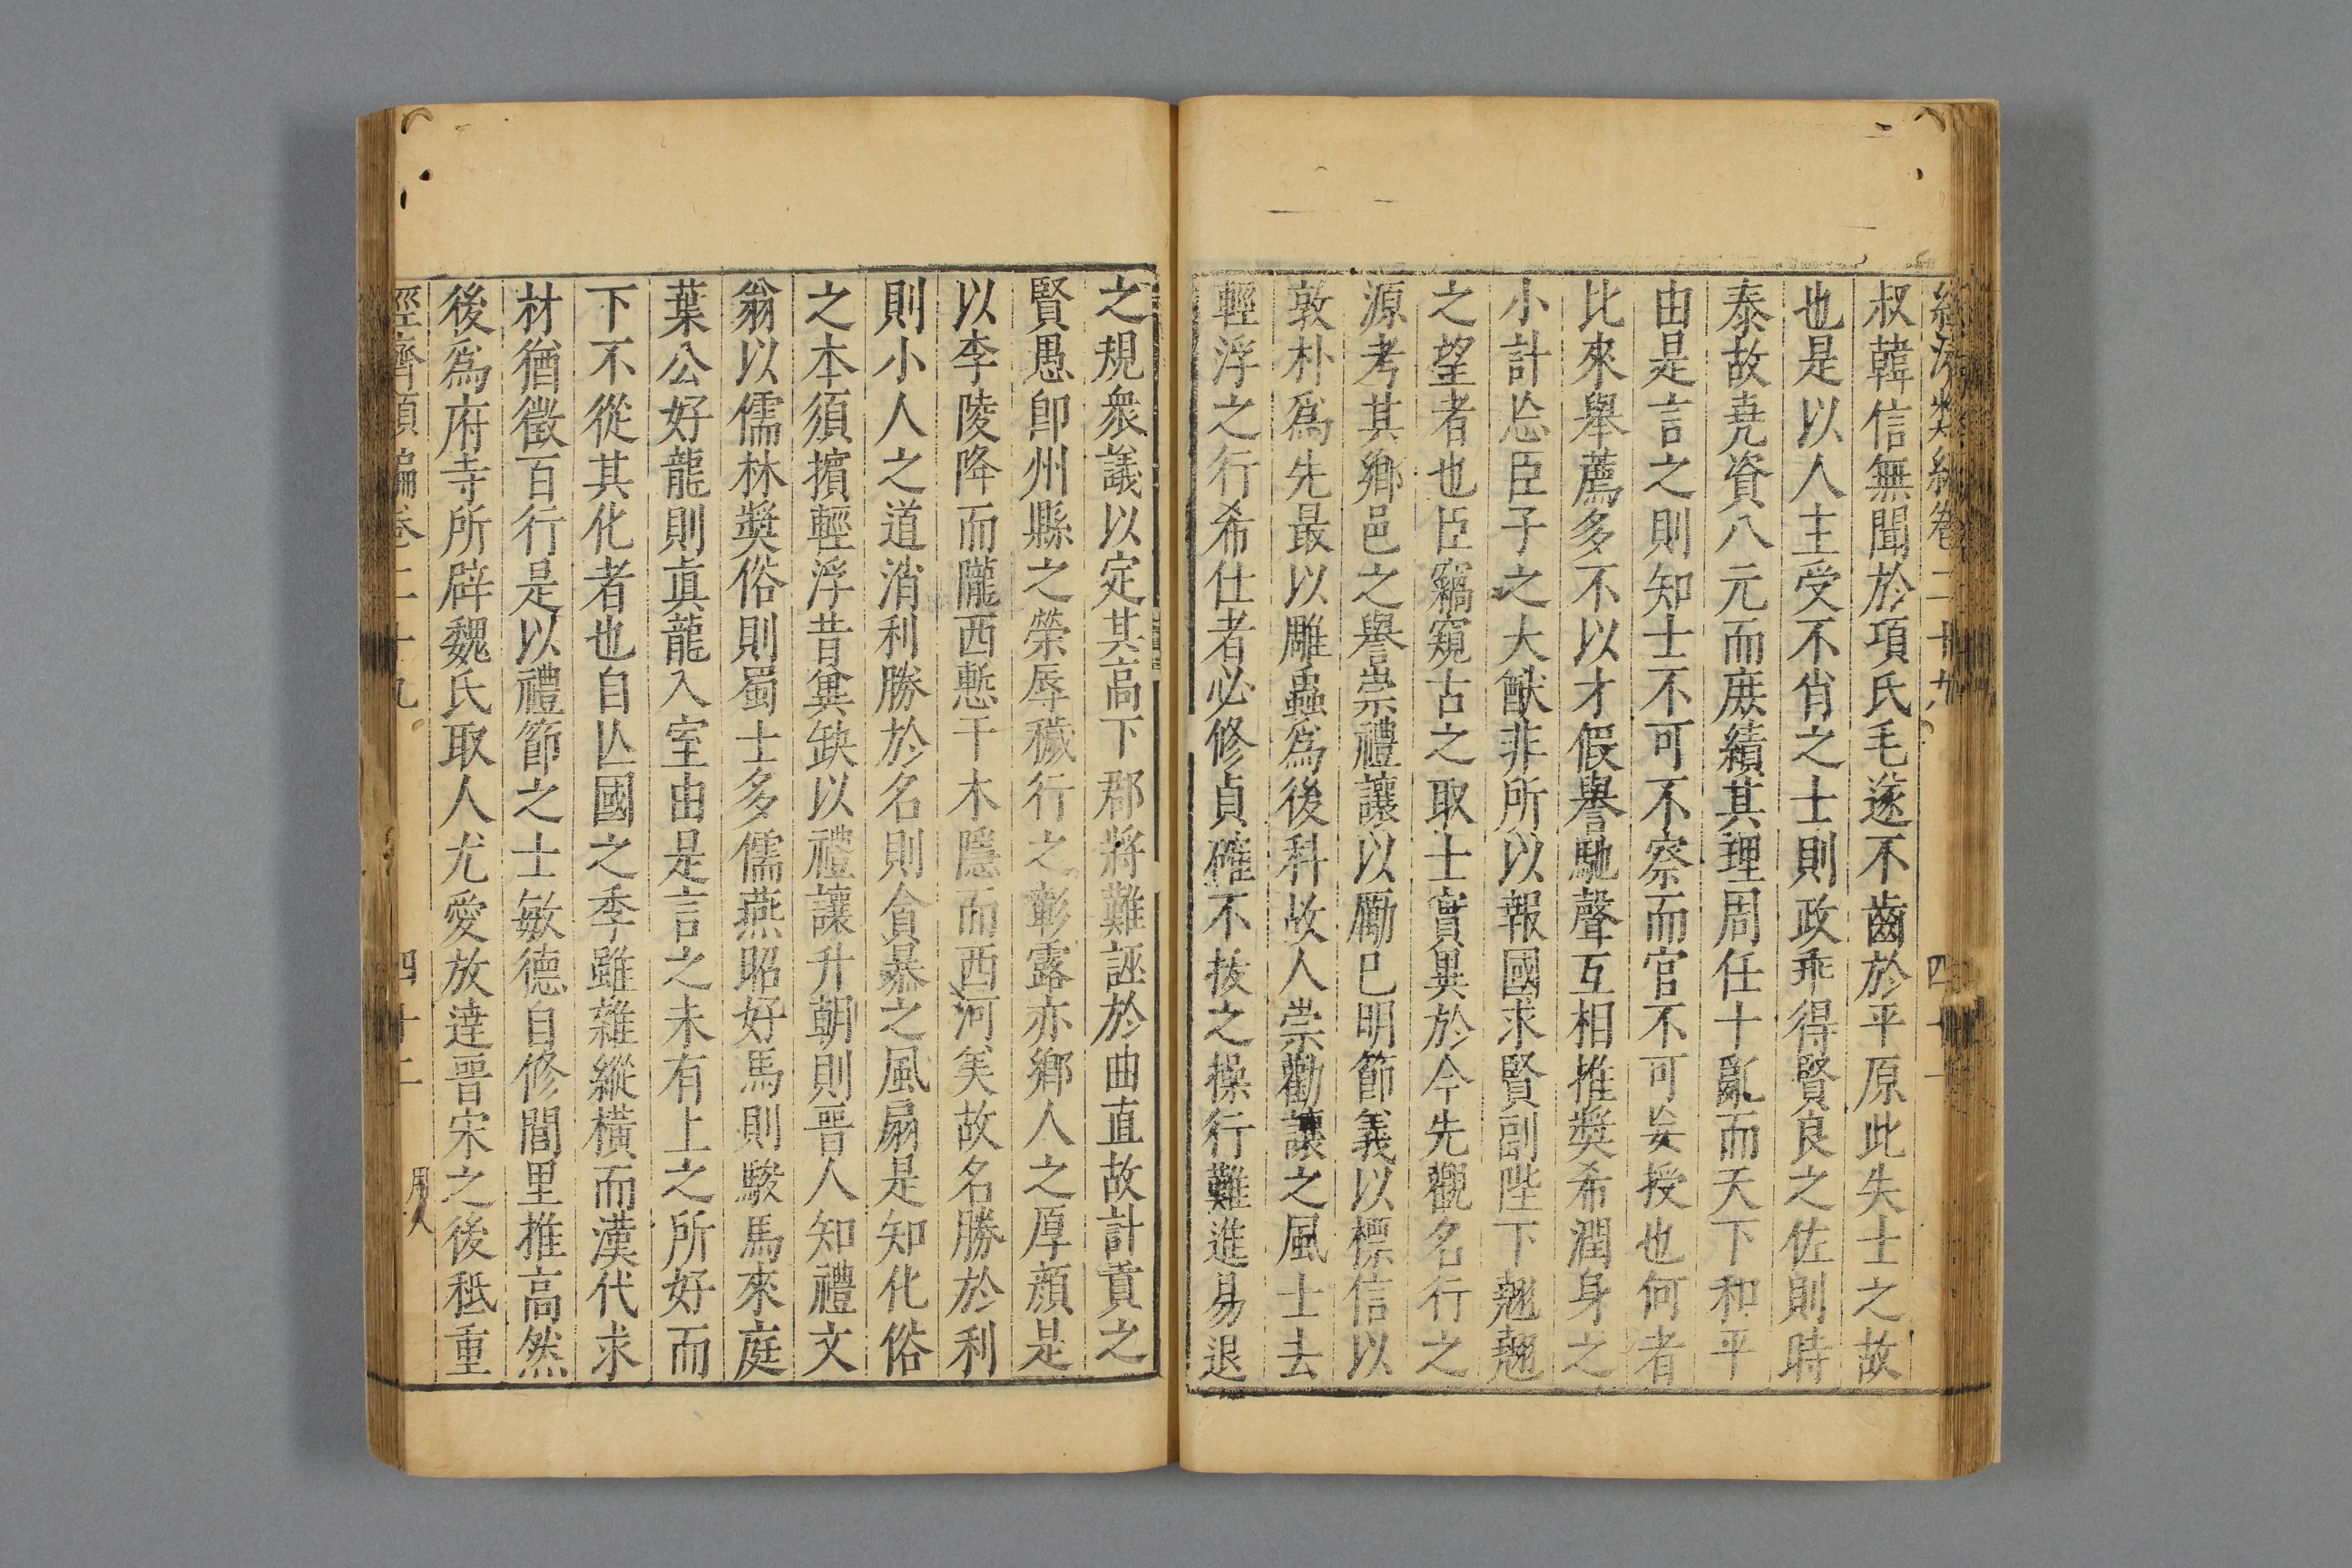 經濟類編卷二十九 四十一
叔韓信無聞於項氏毛遂不齒於平原此失士之故
也是以人主受不肖之士則政乖得賢良之佐則時
泰故堯資八元而庶績其理周任十亂而天下和平
由是言之則知士不可不察而官不可妄授也何者
比來舉薦多不以才假譽馳聲互相推奬希潤身之
小計忘臣子之大猷非所以報國求賢副陛下翹翹
之望者也臣竊窺古之取士實異於今先觀名行之
源考其鄉邑之譽崇禮讓以勵已明節義以標信以
敦朴爲先最以雕蟲爲後科故人崇勸讓之風士去
輕浮之行希仕者必修貞確不拔之操行難進易退
之規衆議以定其高下郡將難誣於曲直故計貢之
賢愚卽州縣之榮辱穢行之彰露亦鄉人之厚顔是
以李陵降而隴西慙干木隱而西河羙故名勝於利
則小人之道消利勝於名則貪暴之風扇是知化俗
之本須擯輕浮昔兾缺以禮讓升朝則晉人知禮文
翁以儒林奬俗則蜀士多儒燕昭好馬則駿馬來庭
葉公好龍則眞龍入室由是言之未有上之所好而
下不從其化者也自亾國之季雖雜縱横而漢代求
材猶徵百行是以禮節之士敏德自修閭里推高然
後爲府寺所辟魏氏取人尤愛放達晉宋之後秪重
經濟類編卷二十九 四十二 用人